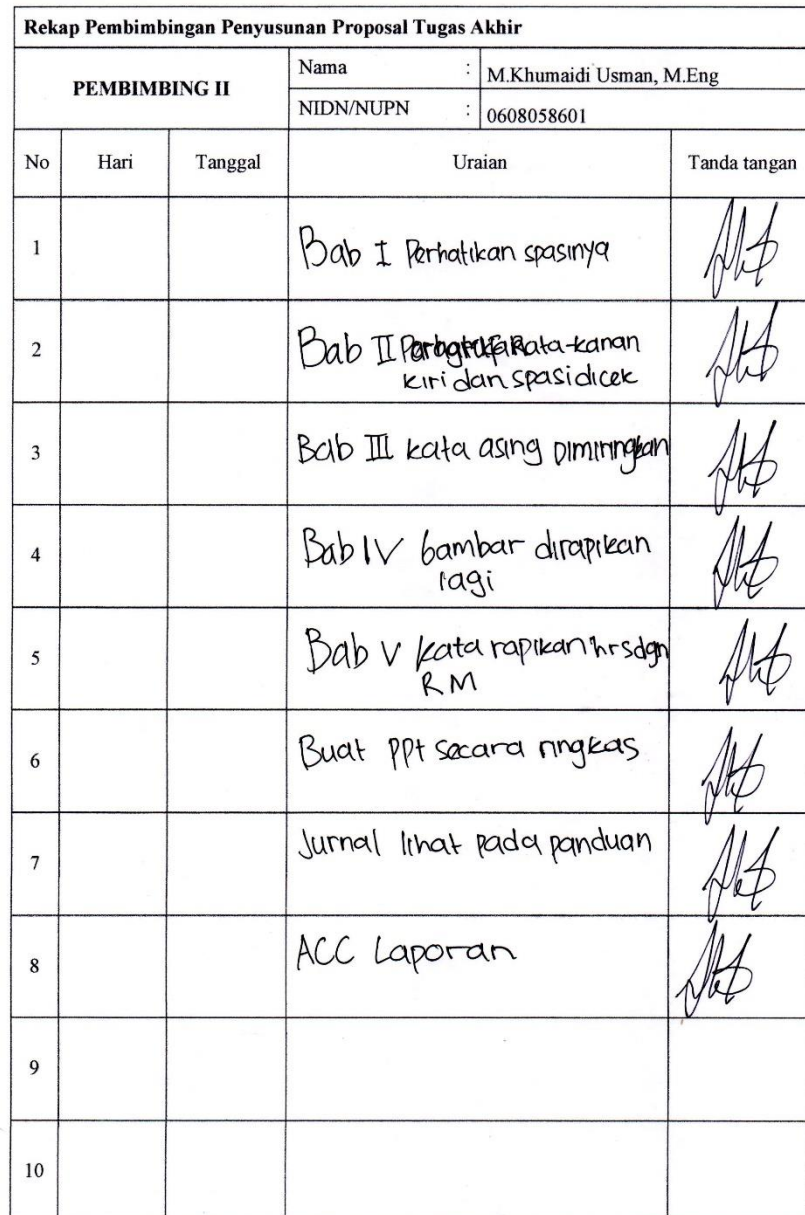 Rekap Pembimbingan Penyusunan Proposal Tugas Akhir
PEMBIMBING II
Nama : M.Khumaidi Usman, M.Eng
NIDN/NUPN : 0608058601
No Hari Tanggal Uraian Tanda tangan
1 Bab I Perhatikan spasinya
2 Bab II Rata-kanan
kiri dan spasi dicek
3 Bab III kata asing Dimiringkan
4 Bab IV Gambar dirapikan
lagi
5 Bab V kata rapikan hrs dgn
RM
6 Buat PPt secara ringkas
7 Jurnal lihat pada panduan
8 ACC Laporan
9
10